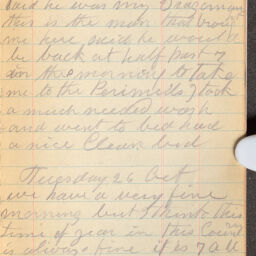 said he was my Dragoman
this is the man that brought
me here said he would
be back at half past 7
in the morning to take
me to the Perimids I took
a much needed wash
and went to bed had
a nice Clean bed
Tuesday 26 Oct
we have a very fine
morning but I think this
time of year in this Country
is always fine it is 7 all